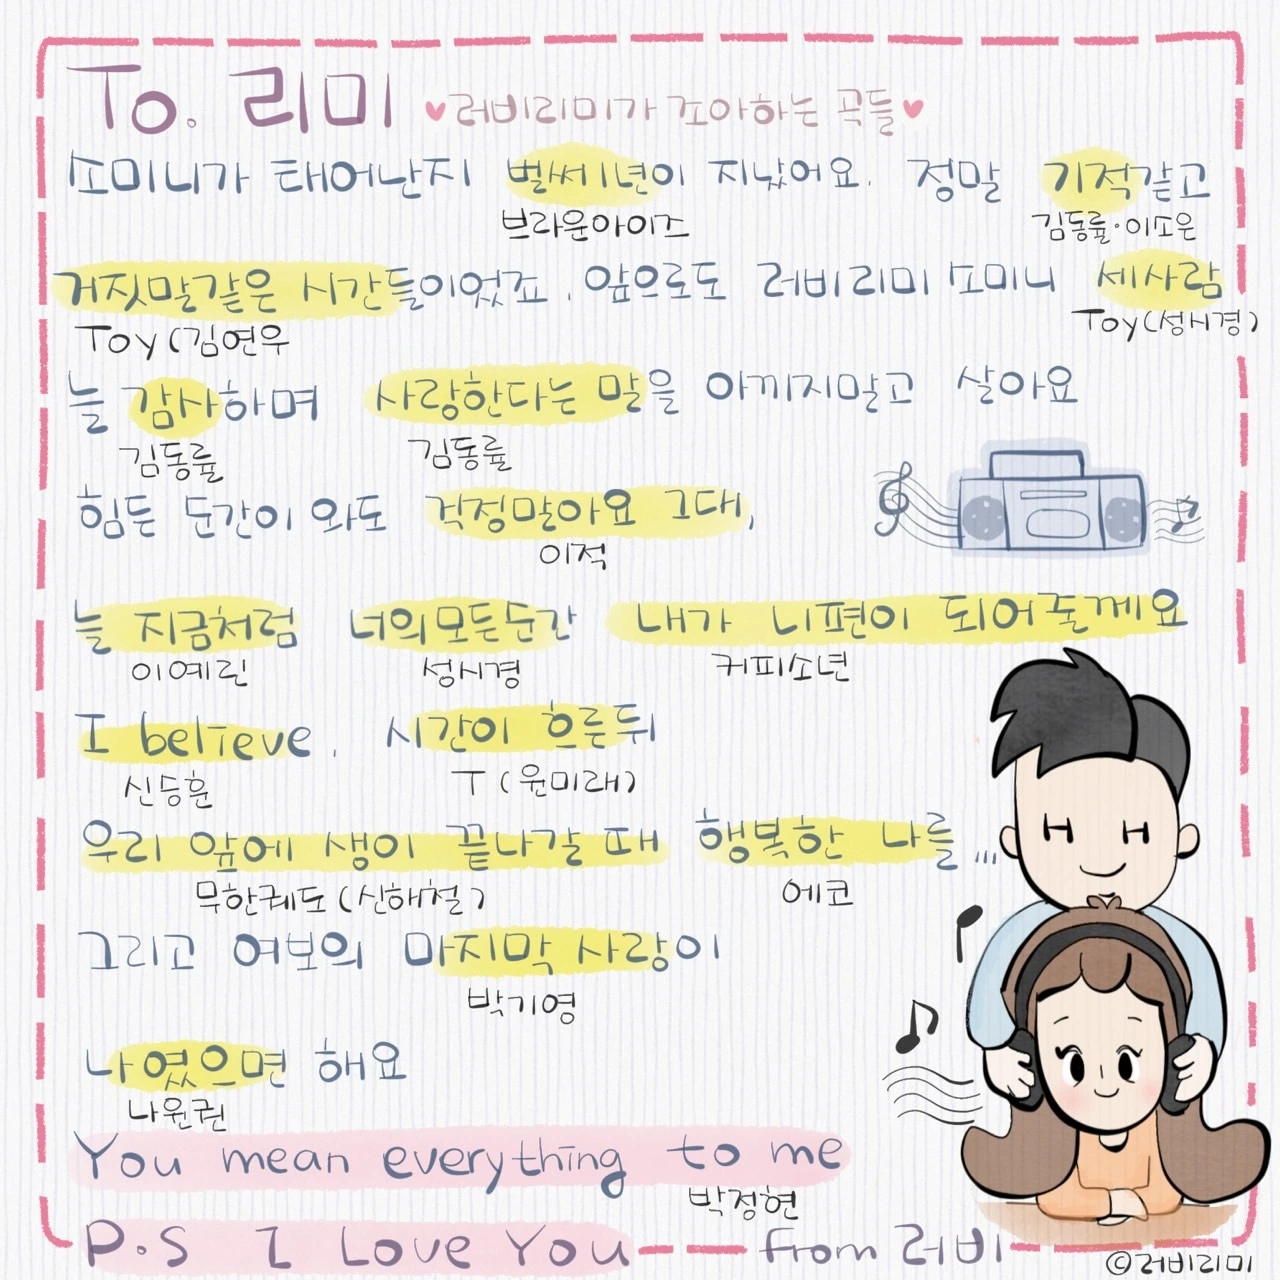 To. 리미 ♥러비리미가 꼬아하는 곡들♥
쏘미니가 태어난지 벌써1년이 지났어요. 정말 기적같고
브라운아이즈 김동률·이소은
거짓말같은 시간들이었죠. 앞으로도 러비리미 쏘미니 세사람
Toy(김연우 Toy(성시경)
늘 감사하며 사랑한다는 말을 아끼지말고 살아요
김동률 김동률
힘든 순간이 와도 걱정말아요 그대,
이적
늘 지금처럼 너의모든순간 내가 니편이 되어줄께요
이예린 성시경 커피소년
I believe. 시간이 흐른뒤
신승훈 T(윤미래)
우리 앞에 생이 끝나갈 때 행복한 나를...
무한궤도(신해철) 에코
그리고 여보의 마지막 사랑이
박기영
나였으면 해요
나윤권
You mean everything to me
박정현
P.S I Love You from 러비
©러비리미